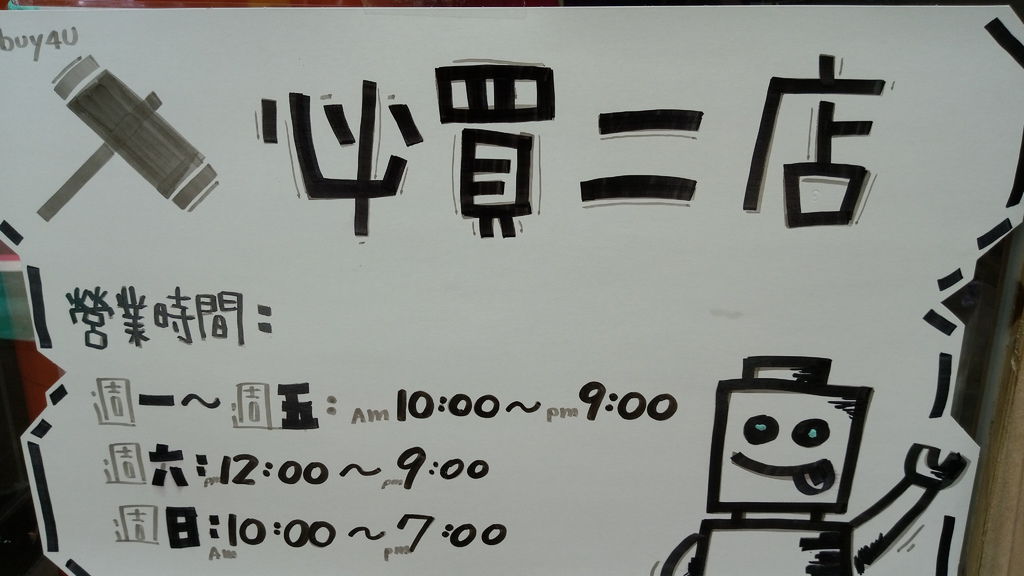 buy4U
必買二店
營業時間:
週一～週五: Am 10:00～pm 9:00
週六: pm 12:00～pm 9:00
週日: Am 10:00～pm 7:00